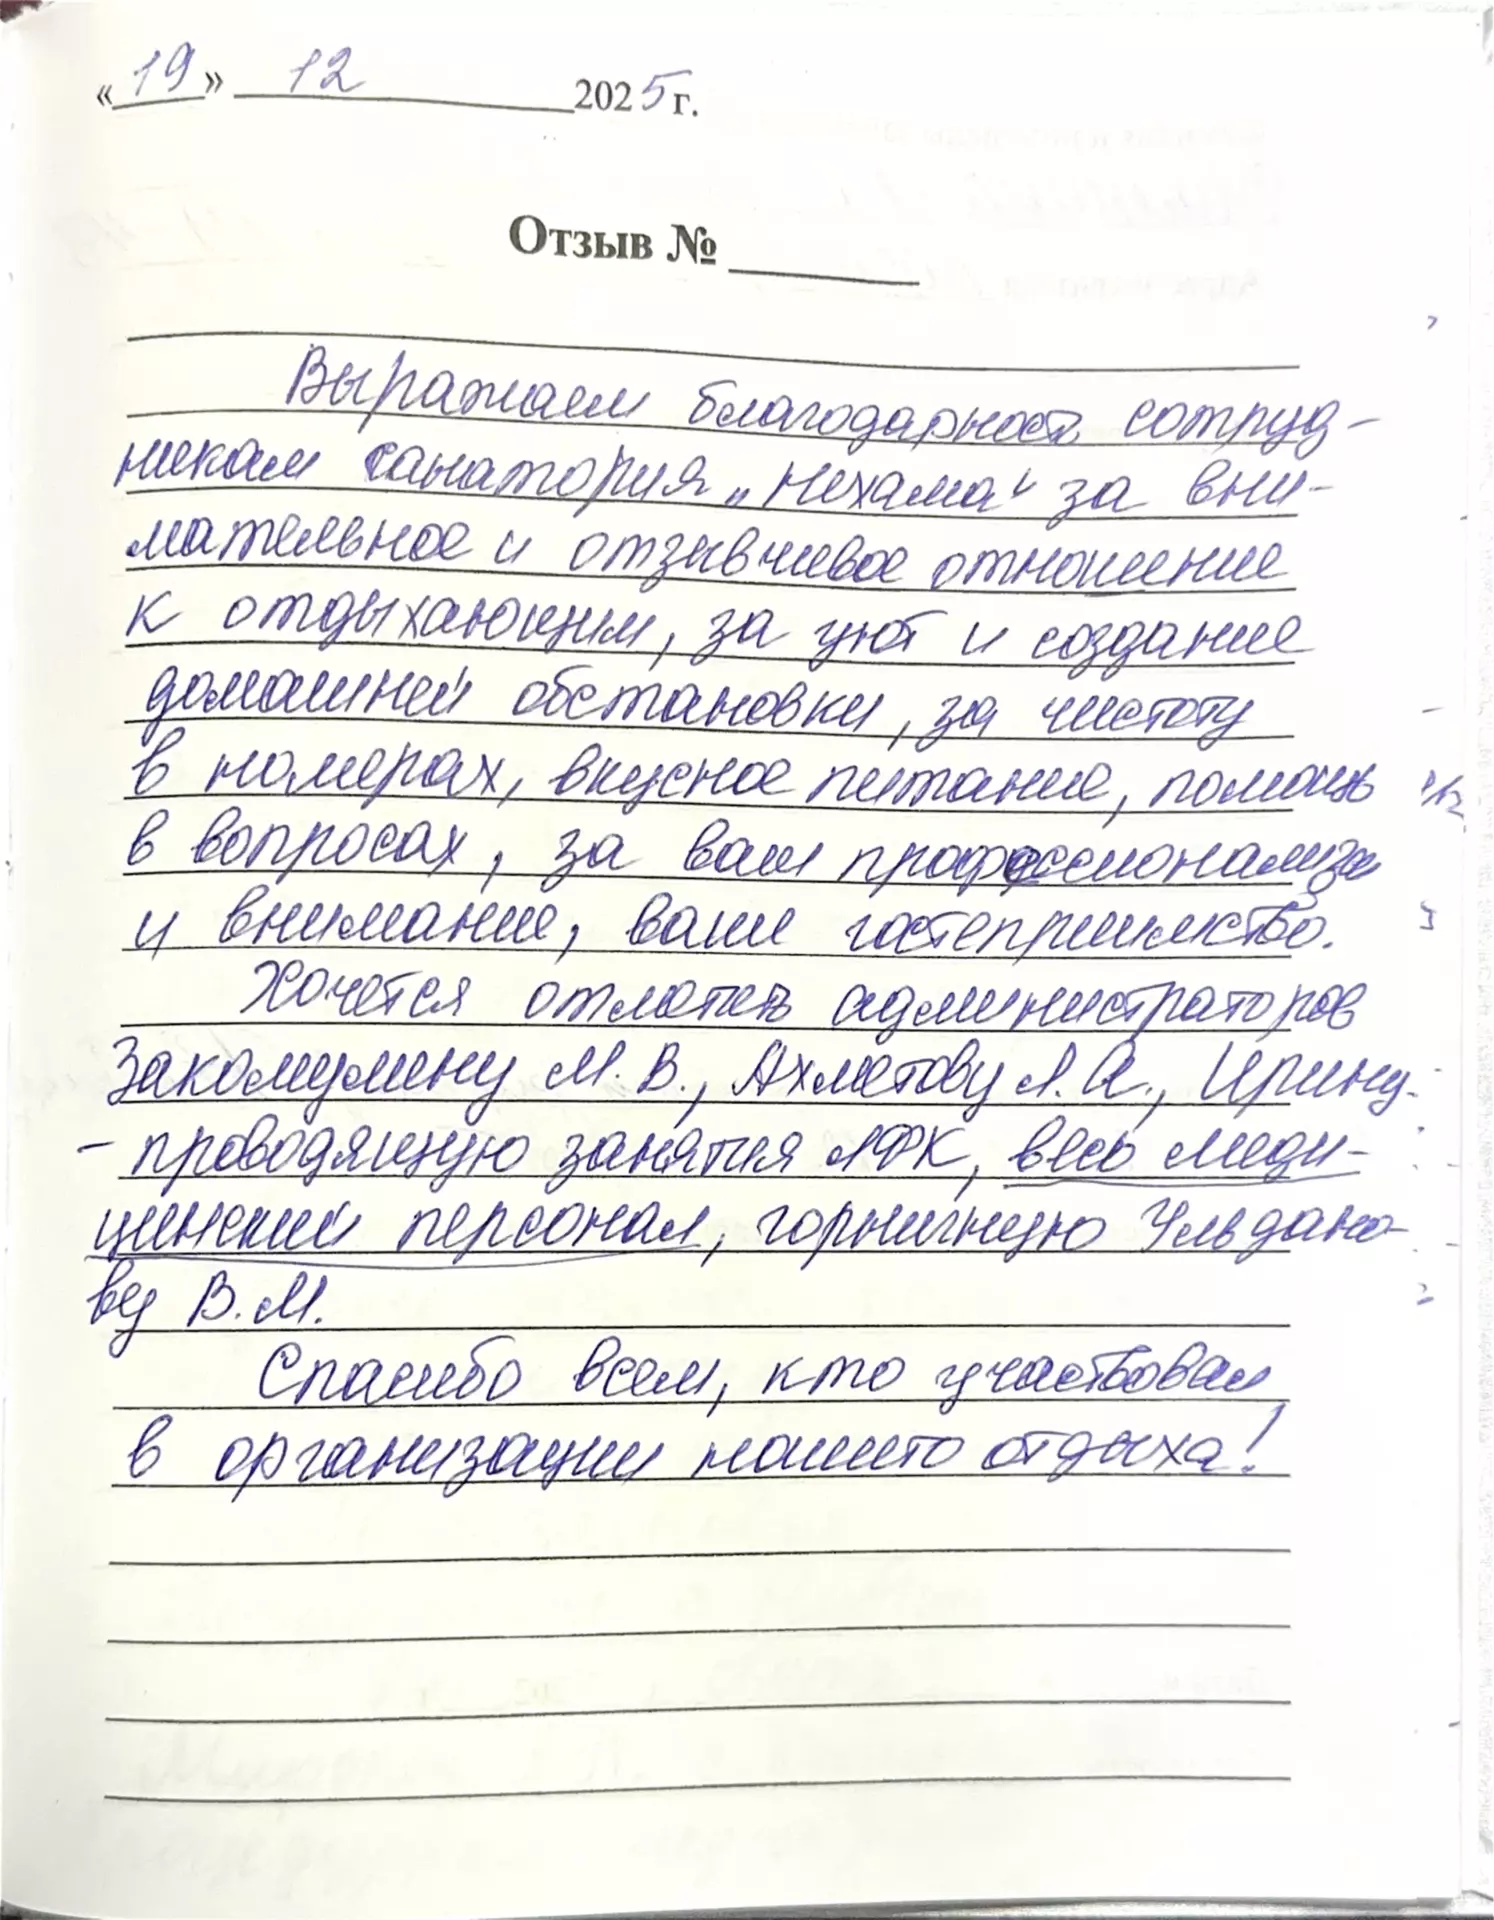 «19» 12 2025 г.
Отзыв №
Выражаем благодарность сотруд-
никам санатория „Нехама“ за вни-
мательное и отзывчивое отношение
к отдыхающим, за уют и создание
домашней обстановки, за чистоту
в номерах, вкусное питание, помощь
в вопросах, за ваш профессионализм
и внимание, ваше гостеприимство.
Хочется отметить администраторов
Закомулину М. В., Ахметову Л. А., Ирину-
- проводящую занятия ЛФК, весь меди-
цинский персонал, горничную Ульдано-
ву В. М.
Спасибо всем, кто участвовал
в организации нашего отдыха!